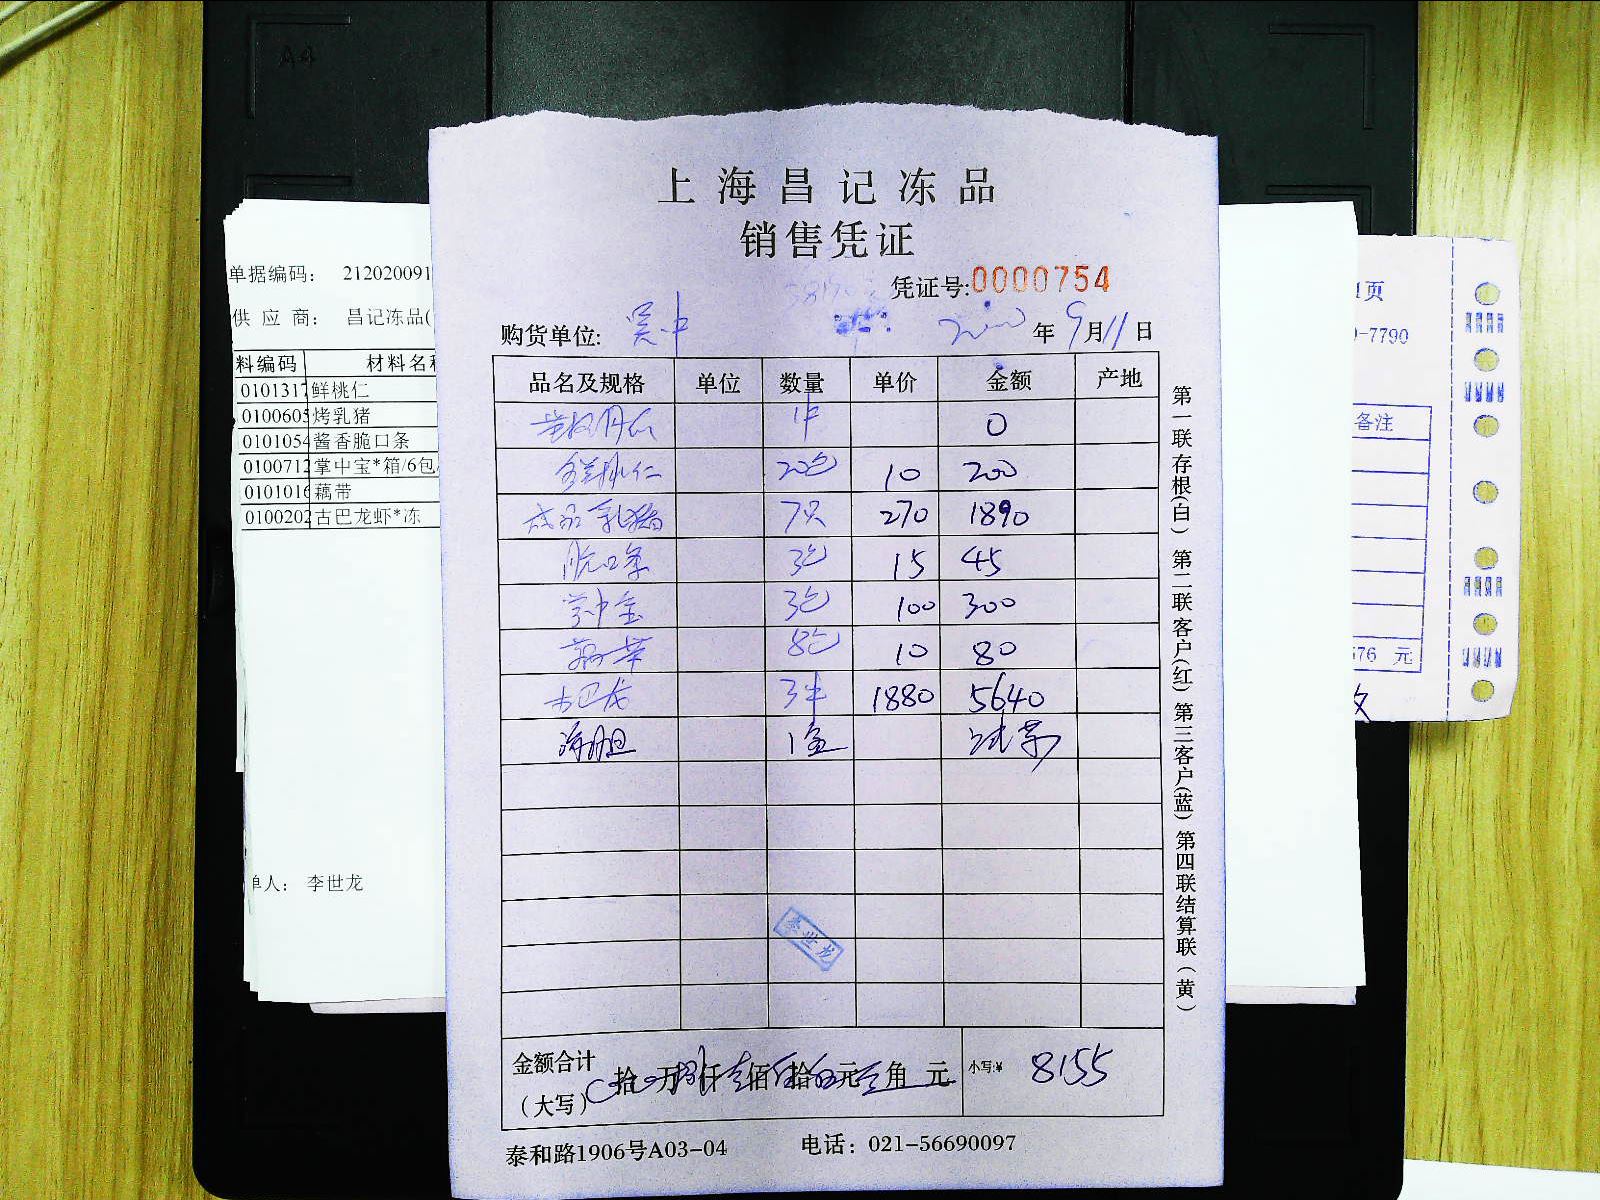 A4
上海昌记冻品
销售凭证
凭证号:0000754
购货单位: 吴中 年 9月11日
品名及规格 单位 数量 单价 金额 产地
1件 0
鲜桃仁 20包 10 200
乳猪 7只 270 1890
脆口条 3包 15 45
掌中宝 3包 100 300
藕带 8包 10 80
古巴龙 3件 1880 5640
海胆 1盒 试菜
李世龙
金额合计
(大写) 拾 万捌仟壹佰伍拾伍元 角 元 小写:¥ 8155
泰和路1906号A03-04 电话：021-56690097
第一联存根(白) 第二联客户(红) 第三客户(蓝) 第四联结算联(黄)
单据编码： 212020091
供应商： 昌记冻品(
料编码 材料名称
0101317 鲜桃仁
0100605 烤乳猪
0101054 酱香脆口条
0100712 掌中宝*箱/6包
0101016 藕带
0100202 古巴龙虾*冻
单人： 李世龙
1页
-7790
备注
576 元